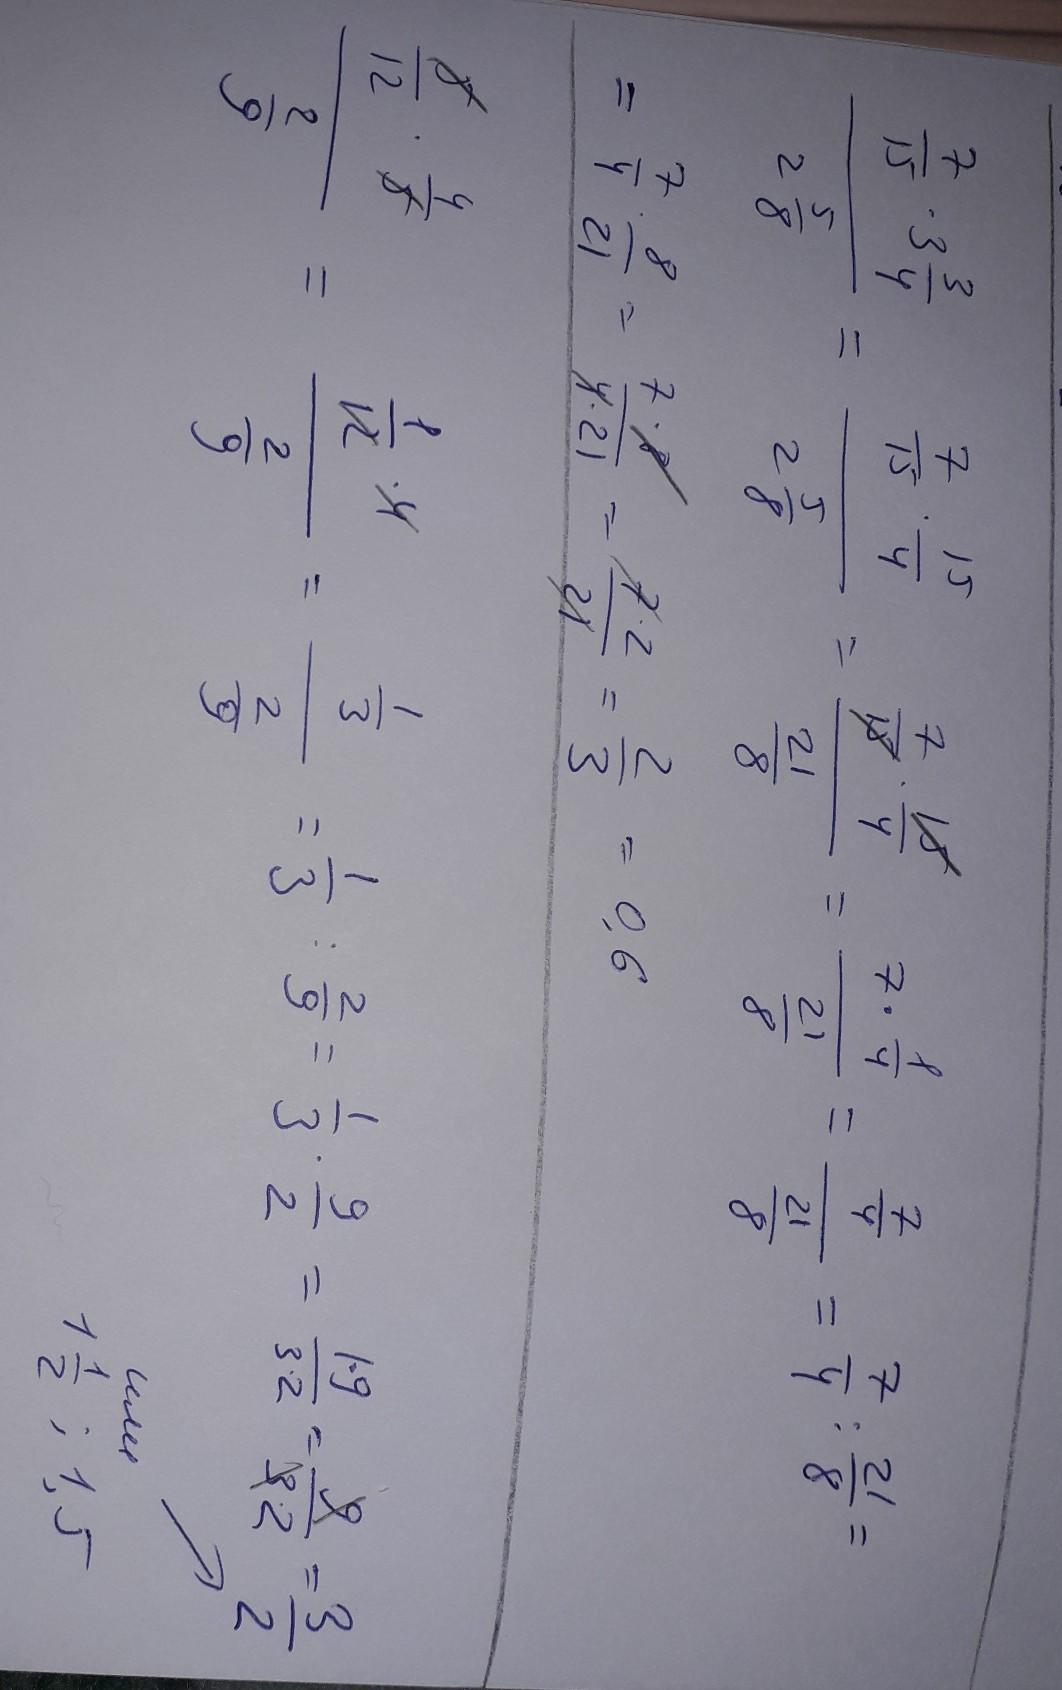 (7/15 · 3 3/4) / (2 5/8) = (7/15 · 15/4) / (2 5/8) = (7/15 · 15/4) / (21/8) = (7 · 1/4) / (21/8) = (7/4) / (21/8) = 7/4 : 21/8 =
= 7/4 · 8/21 = (7·8)/(4·21) = (7·2)/21 = 2/3 = 0,6
(5/12 · 4/5) / (2/9) = (1/12 · 4) / (2/9) = (1/3) / (2/9) = 1/3 : 2/9 = 1/3 · 9/2 = (1·9)/(3·2) = 9/(3·2) = 3/2
или
1 1/2 ; 1,5